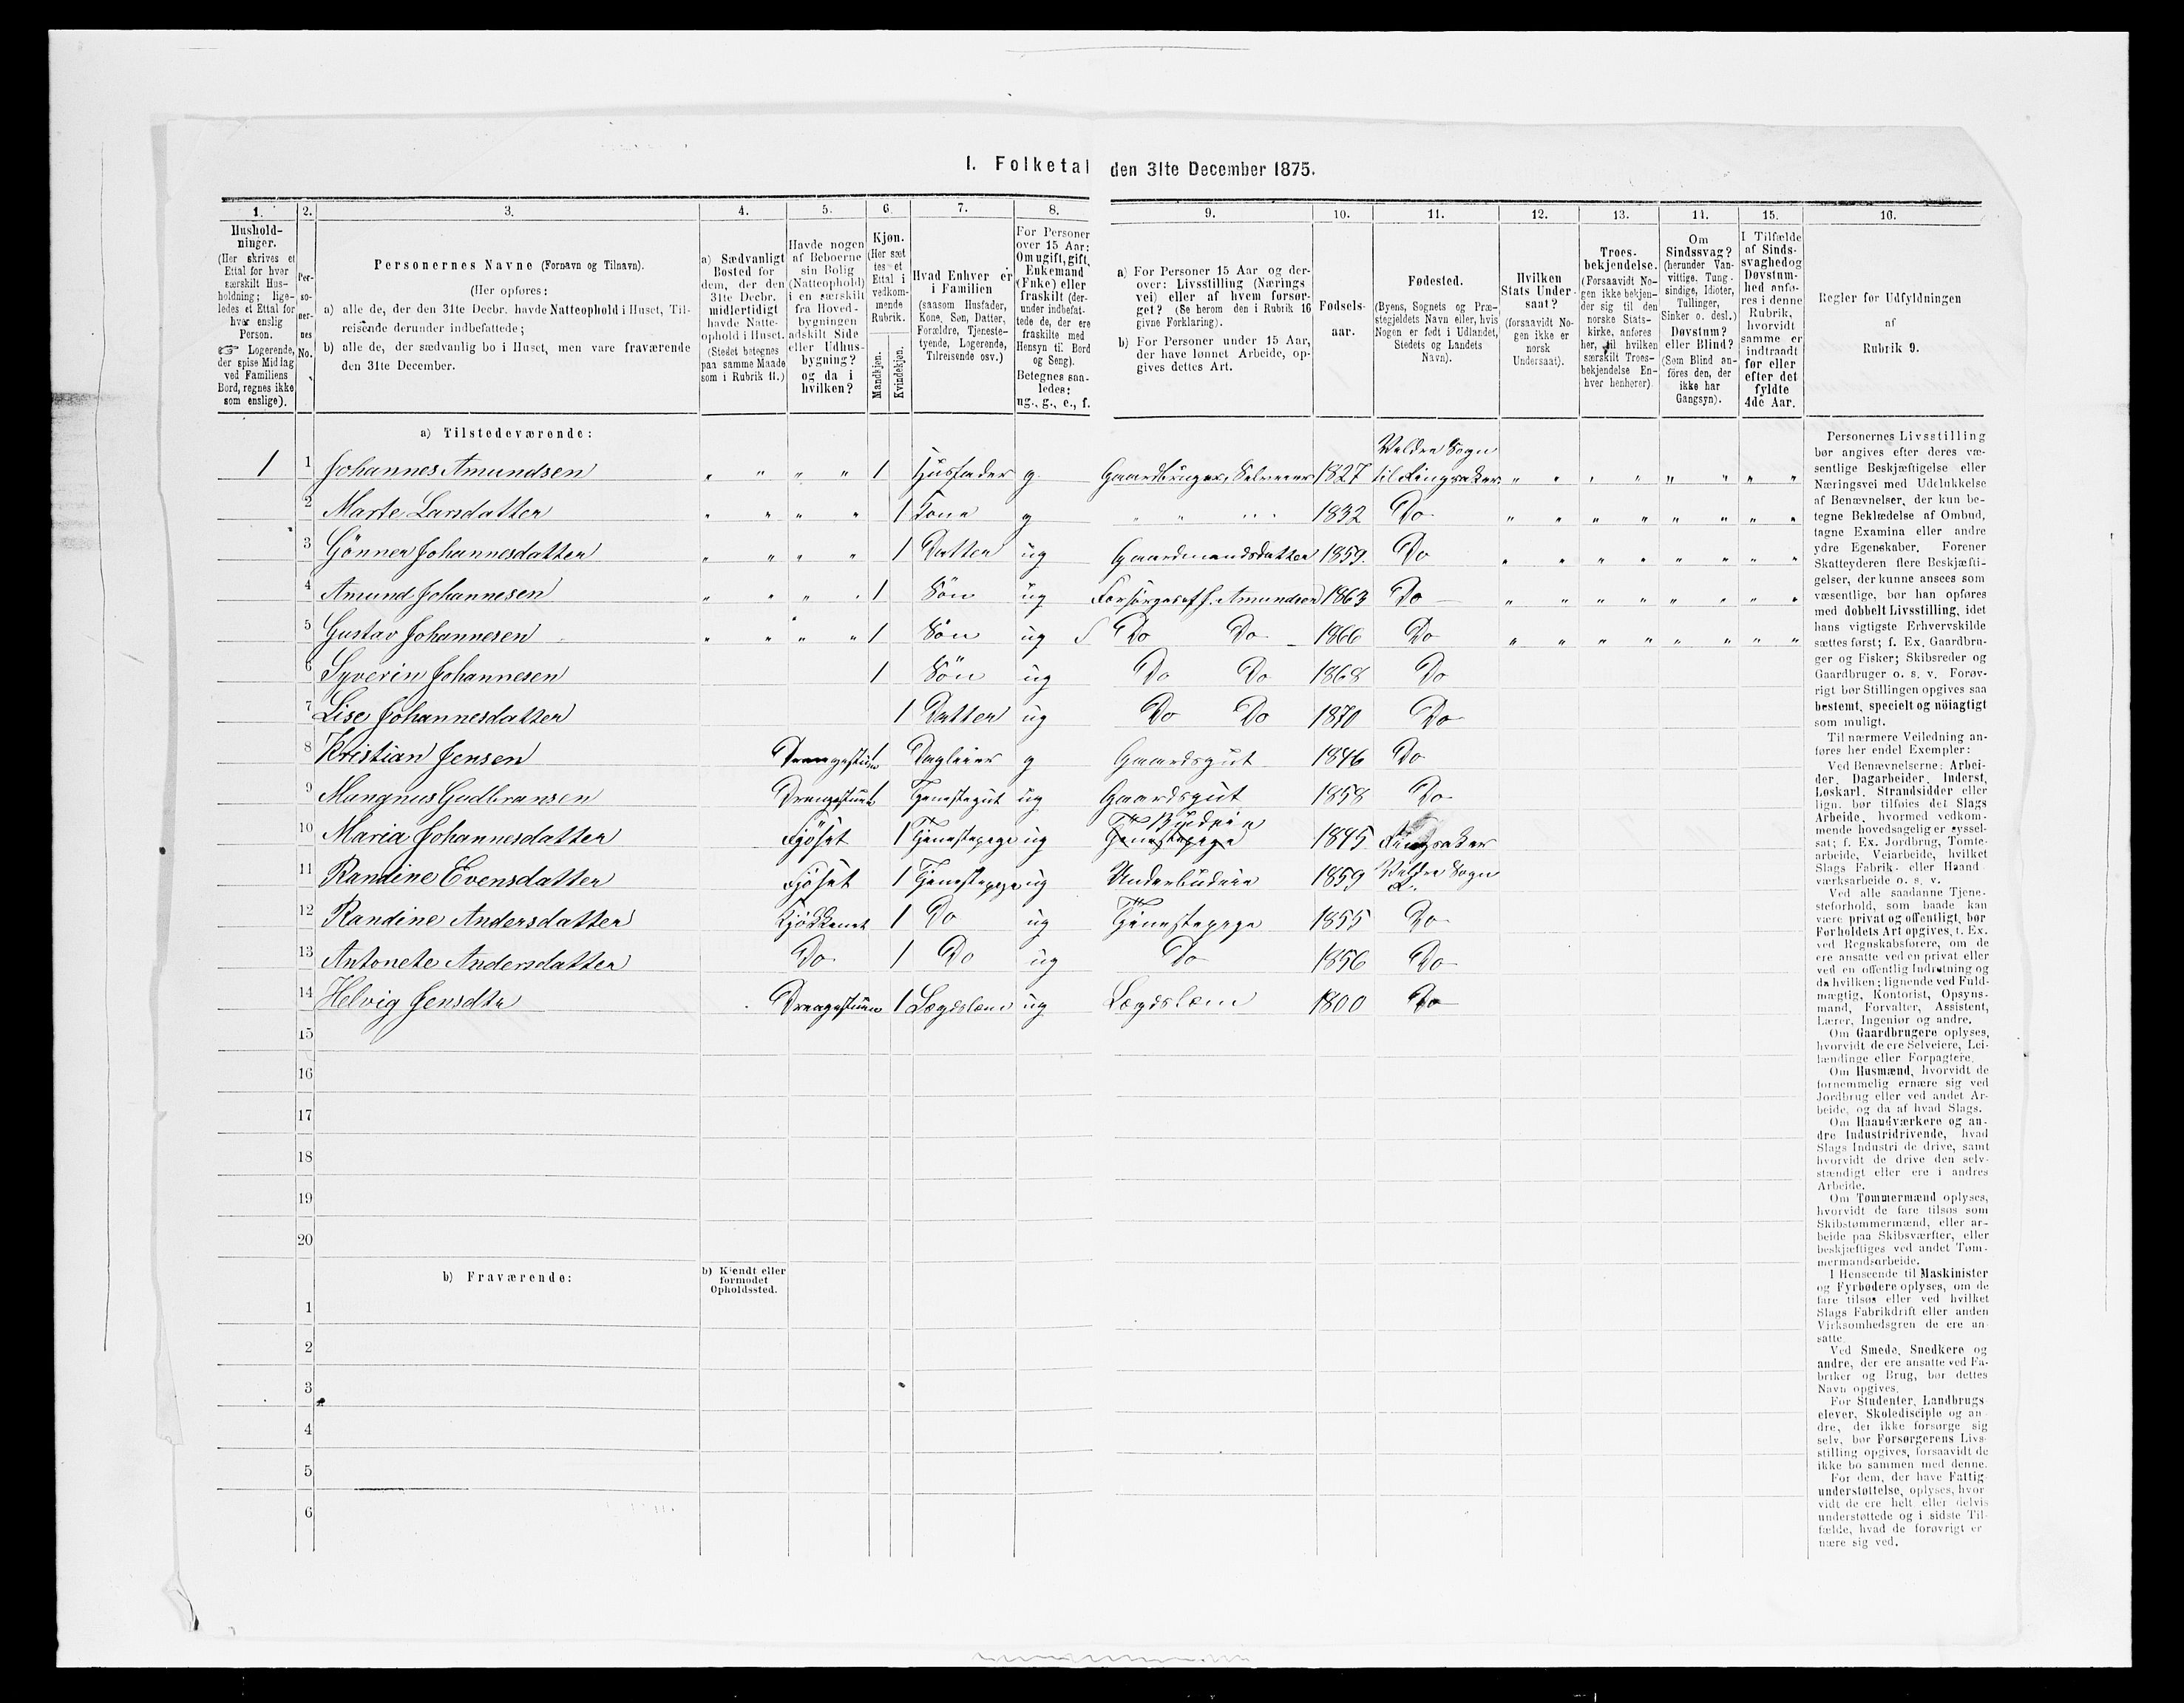 I. Folketal den 31te December 1875.
1. 2. 3. 4. 5. 6. 7. 8. 9. 10. 11. 12. 13. 14. 15. 16.
Hushold-
ninger.
(Her skrives et
Ettal for hver
særskilt Hus-
holdning; lige-
ledes et Ettal for
hver enslig
Person.
☞ Logerende,
der spise Middag
ved Familiens
Bord, regnes ikke
som enslige).
Per-
so-
ner-
nes
No.
Personernes Navne (Fornavn og Tilnavn).
(Her opføres:
a) alle de, der den 31te Decbr. havde Natteophold i Huset, Til-
reisende derunder indbefattede;
b) alle de, der sædvanlig bo i Huset, men vare fraværende
den 31te December.
a) Sædvanligt
Bosted for
dem, der den
31te Decbr.
midlertidigt
havde Natte-
ophold i Huset.
(Stedet betegnes
paa samme Maade
som i Rubrik 11.)
Havde nogen
af Beboerne
sin Bolig
(Natteophold)
i en særskilt
fra Hoved-
bygningen
adskilt Side
eller Udhus-
bygning?
og da i
hvilken?
Kjøn.
(Her sæt
tes et
Ettal i
vedkom-
mende
Rubrik.
Mandkjøn.
Kvindekjøn.
Hvad Enhver er
i Familien
(saasom Husfader,
Kone, Søn, Datter,
Forældre, Tjeneste-
tyende, Logerende,
Tilreisende osv.)
For Personer
over 15 Aar:
Om ugift, gift,
Enkemand
(Enke) eller
fraskilt (der-
under indbefat-
tede de, der ere
fraskilte med
Hensyn til Bord
og Seng).
Betegnes saa-
ledes:
ug., g., e., f.
a) For Personer 15 Aar og der-
over: Livsstilling (Nærings
vei) eller af hvem forsør-
get? (Se herom den i Rubrik 16
givne Forklaring).
b) For Personer under 15 Aar,
der have lønnet Arbeide, op-
gives dettes Art.
Fødsels-
aar.
Fødested.
(Byens, Sognets og Præ-
stegjeldets Navn eller, hvis
Nogen er født i Udlandet,
Stedets og Landets
Navn).
Hvilken
Stats Under-
saat?
(forsaavidt No-
gen ikke er
norsk
Undersaat).
Troes-
bekjendelse.
(Forsaavidt No-
gen ikke bekjen-
der sig til den
norske Stats-
kirke, anføres
her, til hvilken
særskilt Troes-
bekjendelse En-
hver henhører).
Om
Sindssvag?
(herunder Van-
vittige, Tung-
sindige, Idioter,
Tullinger,
Sinker o. desl.)
Døvstum?
eller Blind?
(Som Blind an-
føres den, der
ikke har
Gangsyn).
I Tilfælde
af Sinds-
svaghed og
Døvstum-
hed anfø-
res i denne
Rubrik,
hvorvidt
samme er
indtraadt
før eller
efter det
fyldte
4de Aar.
Regler for Udfyldningen
af
Rubrik 9.
a) Tilstedeværende:
1 1 Johannes Amundsen " " " " 1 Husfader g Gaardbruger, Selveier 1827 Veldre Sogn til Ringsaker " " " " " " " "
2 Marte Larsdatter " " " " 1 Kone g " " " " 1832 Do " " " " " " " "
3 Gönner Johannesdatter " " " " 1 Datter ug Gaardmandsdatter 1859. Do " " " " " " " "
4 Amund Johannesen " " " " 1 Sön ug Forsörges af J. Amundsen 1863 Do " " " " " " " "
5 Gustav Johannesen " " " " 1 Sön ug Do Do 1866 Do " " " " " " " "
6 Syverin Johannesen 1 Sön ug Do Do 1868 Do
7 Lise Johannesdatter 1 Datter ug Do Do 1870 Do
8 Kristian Jensen Drengestuen 1 Dagleier g Gaardsgut 1846 Do
9 Mangnus Gudbransen Drengestuen 1 Tjenestegut ug Gaardsgut 1858 Do
10 Maria Johannesdatter Fjöset 1 Tjenestepige ug Tjenestepige Budeie 1845 Ringsaker
11 Randine Evensdatter Fjöset 1 Tjenestepige ug Underbudeie 1859 Veldre Sogn
12 Randine Andersdatter Kjökkenet 1 Do ug Tjenestepige 1855 Do
13 Antonete Andersdatter Do 1 Do ug Do 1856 Do
14 Helvig Jensdtr Drengestuen 1 Lægdslem ug Lægdslem 1800 Do
15
16
17
18
19
20
b) Fraværende:
b) Kjendt eller
formodet
Opholdssted.
1
2
3
4
5
6
Personernes Livsstilling
bør angives efter deres væ-
sentlige Beskjæftigelse eller
Næringsvei med Udelukkelse
af Benævnelser, der kun be-
tegne Beklædelse af Ombud,
tagne Examina eller andre
ydre Egenskaber. Forener
Skatteyderen flere Beskjæfti-
gelser, der kunne ansees som
væsentlige, bør han opføres
med dobbelt Livsstilling, idet
hans vigtigste Erhvervskilde
sættes først; f. Ex. Gaardbru-
ger og Fisker; Skibsreder og
Gaardbruger o. s. v. Forøv-
rigt bør Stillingen opgives saa
bestemt, specielt og nöiagtigt
som muligt.
Til nærmere Veiledning an-
føres her endel Exempler:
Ved Benævnelserne: Arbei-
der, Dagarbeider, Inderst,
Løskarl, Strandsidder eller
lign. bør tilføies det Slags
Arbeide, hvormed vedkom-
mende hovedsagelig er syssel-
sat; f. Ex. Jordbrug, Tomte-
arbeide, Veiarbeide, hvilket
Slags Fabrik- eller Haand-
værksarbeide o. s. v.
Ved alle saadanne Tjene-
steforhold, som baade kan
være privat og offentligt, bør
Forholdets Art opgives, f. Ex.
ved Regnskabsførere, om de
ere ansatte ved en privat eller
ved en offentlig Indretning og
da hvilken; lignende ved Fuld-
mægtig, Kontorist, Opsyns-
mand, Forvalter, Assistent,
Lærer, Ingeniør og andre.
Om Gaardbrugere oplyses,
hvorvidt de ere Selveiere, Lei-
lændinge eller Forpagtere.
Om Husmænd, hvorvidt de
fornemmelig ernære sig ved
Jordbrug eller ved andet Ar-
beide, og da af hvad Slags.
Om Haandværkere og an-
dre Industridrivende, hvad
Slags Industri de drive, samt
hvorvidt de drive den selv-
stændigt eller ere i andres
Arbeide.
Om Tømmermænd oplyses,
hvorvidt de fare tilsøs som
Skibstømmermænd, eller ar-
beide paa Skibsværfter, eller
beskjæftiges ved andet Tøm-
mermandsarbeide.
I Henseende til Maskinister
og Fyrbødere oplyses, om de
fare tilsøs eller ved hvilket
Slags Fabrikdrift eller anden
Virksomhedsgren de ere an-
satte.
Ved Smede, Snedkere og
andre, der ere ansatte ved Fa-
briker og Brug, bør dettes
Navn opgives.
For Studenter, Landbrugs
elever, Skoledisciple og an-
dre, der ikke forsørge sig
selv, bør Forsørgerens Livs-
stilling opgives, forsaavidt de
ikke bo sammen med denne.
For dem, der have Fattig-
understøttelse, oplyses, hvor
vidt de ere helt eller delvis
understøttede og i sidste Til-
fælde, hvad de forøvrigt er-
nære sig ved.